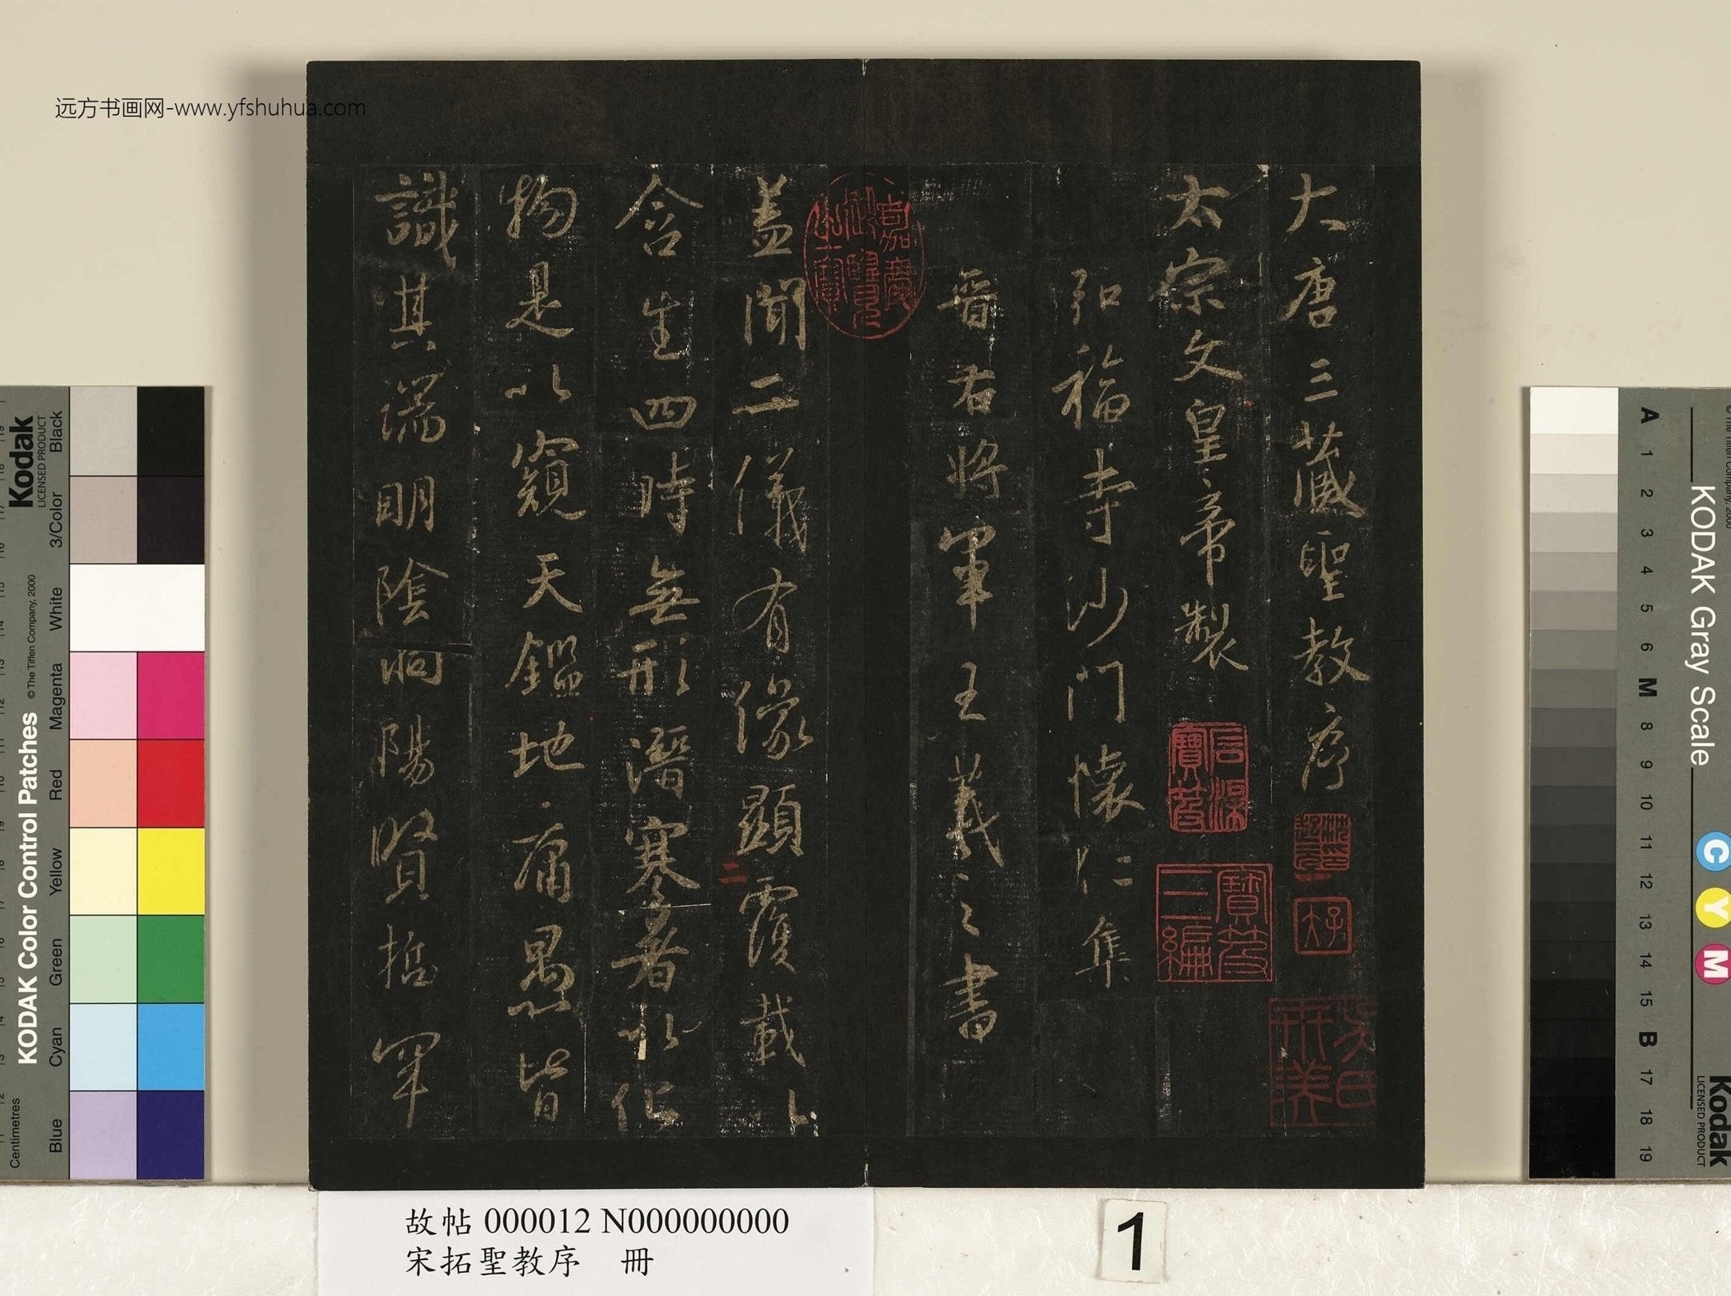 远方书画网-www.yfshuhua.com
大唐三藏聖教序
太宗文皇帝製
弘福寺沙門懷仁集
晉右將軍王羲之書
嘉慶御覽之寶
寶笈三編
蓋聞二儀有像顯覆載以
二
含生四時無形潛寒暑以化
物是以窺天鑑地庸愚皆
識其端明陰洞陽賢哲罕
故帖 000012 N000000000
宋拓聖教序 冊
1
Kodak
LICENSED PRODUCT
KODAK Color Control Patches
© The Tiffen Company, 2000
Centimetres
Black
3/Color
White
Magenta
Red
Yellow
Green
Cyan
Blue
KODAK Gray Scale
A 1 2 3 4 5 6 M 8 9 10 11 12 13 14 15 B 17 18 19
C
Y
M
Kodak
LICENSED PRODUCT